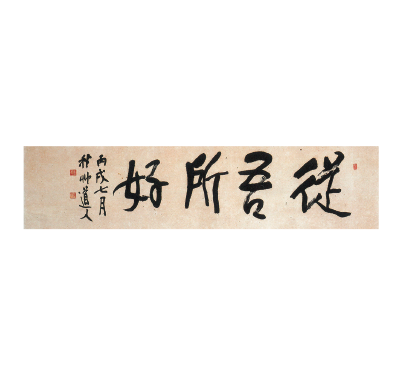 從吾所好
丙戌七月
道人